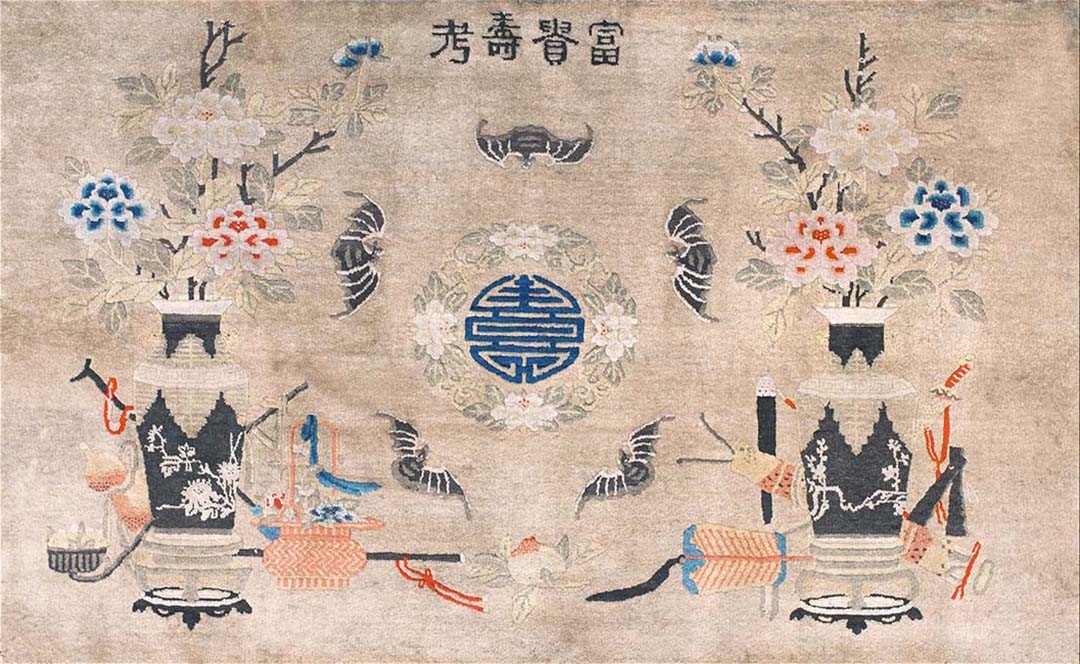 富貴壽考
壽